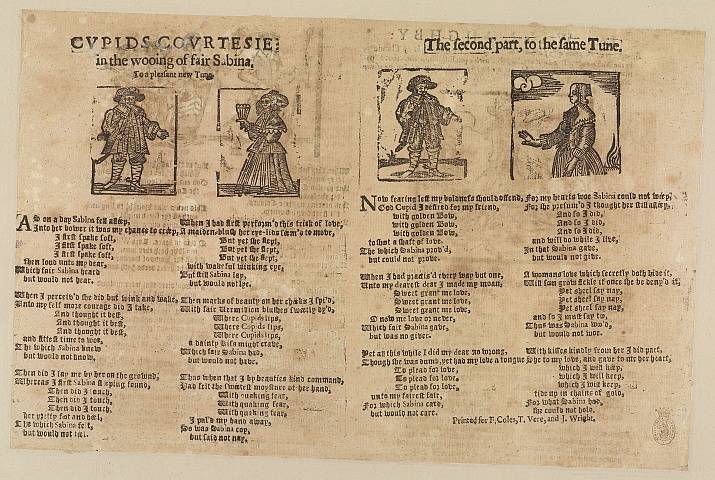 CVPIDS COVRTESIE:
in the wooing of fair Sabina,
To a pleasant new Tune.
AS on a day Sabina fell asleep,
Into her bower it was my chance to creep,
I first spake soft,
I first spake soft,
I first spake soft,
then loud unto my dear,
Which fair Sabina heard
but would not hear.
When I perceiv'd she did but wink and wake,
Unto my self more courage did I take,
And thought it best,
And thought it best,
And thought it best,
and fittest time to woo,
The which Sabina knew
but would not know.
Then did I lay me by her on the ground,
Whereas I first Sabina sleeping found,
Then did I touch,
Then did I touch,
Then did I touch,
her pretty foot and heel,
The which Sabina felt,
but would not feel.
When I had first perform'd this trick of love,
A maiden-blush her eye-lids seem'd to move,
But yet she slept,
But yet she slept,
But yet she slept,
with wakeful winking eye,
But still Sabina lay,
but would not lye.
Then marks of beauty on her cheeks I spy'd,
With fair Vermilion blushes sweetly dy'd,
Where Cupids lips,
Where Cupids lips,
Where Cupids lips,
a dainty kiss might crave,
Which fair Sabina had,
but would not have.
Thus when that I by beauties kind command,
Had felt the sweetest moysture of her hand,
With quaking fear,
With quaking fear,
With quaking fear,
I pul'd my hand away,
So was Sabina coy,
but said not nay,
The second part, to the same Tune.
NOw fearing lest my boldness should offend,
God Cupid I desired for my friend,
with golden Bow,
with golden Bow,
with golden Bow,
to shoot a shaft of love,
The which Sabina prov'd,
but could not prove.
When I had practis'd every way but one,
Unto my dearest dear I made my moan,
Sweet grant me love,
Sweet grant me love,
Sweet grant me love,
O now me love or never,
Which fair Sabina gave,
but was no giver.
Yet all this while I did my dear no wrong,
Though she was dumb, yet had my love a tongue
To plead for love,
To plead for love,
To plead for love,
unto my fairest fair,
For which Sabina car'd,
but would not care.
For my hearts woe Sabina could not weep,
For she perform'd I thought her still asleep,
And so I did,
And so I did,
And so I did,
and will do while I live,
In that Sabina gave,
but would not give.
A womans love which secretly doth hide it,
Will soon grow fickle if once she be deny'd it,
Yet sheel say nay,
Yet sheel say nay,
Yet sheel say nay,
and so I must say to,
Thus was Sabina woo'd,
but would not woe.
With kisses kindly from her I did part,
She to my love, and gave to me her heart,
which I will keep,
which I will keep,
which I will keep,
tide up in chains of gold,
For what Sabina had,
she could not hold.
Printed for F. Coles, T. Vere, and J. Wright.